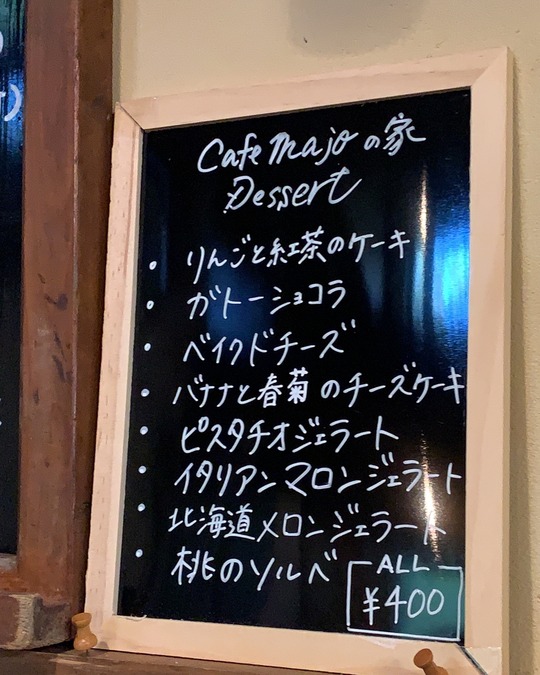 Cafe majoの家
Dessert
・りんごと紅茶のケーキ
・ガトーショコラ
・ベイクドチーズ
・バナナと春菊のチーズケーキ
・ピスタチオジェラート
・イタリアンマロンジェラート
・北海道メロンジェラート
・桃のソルベ
ALL
¥400